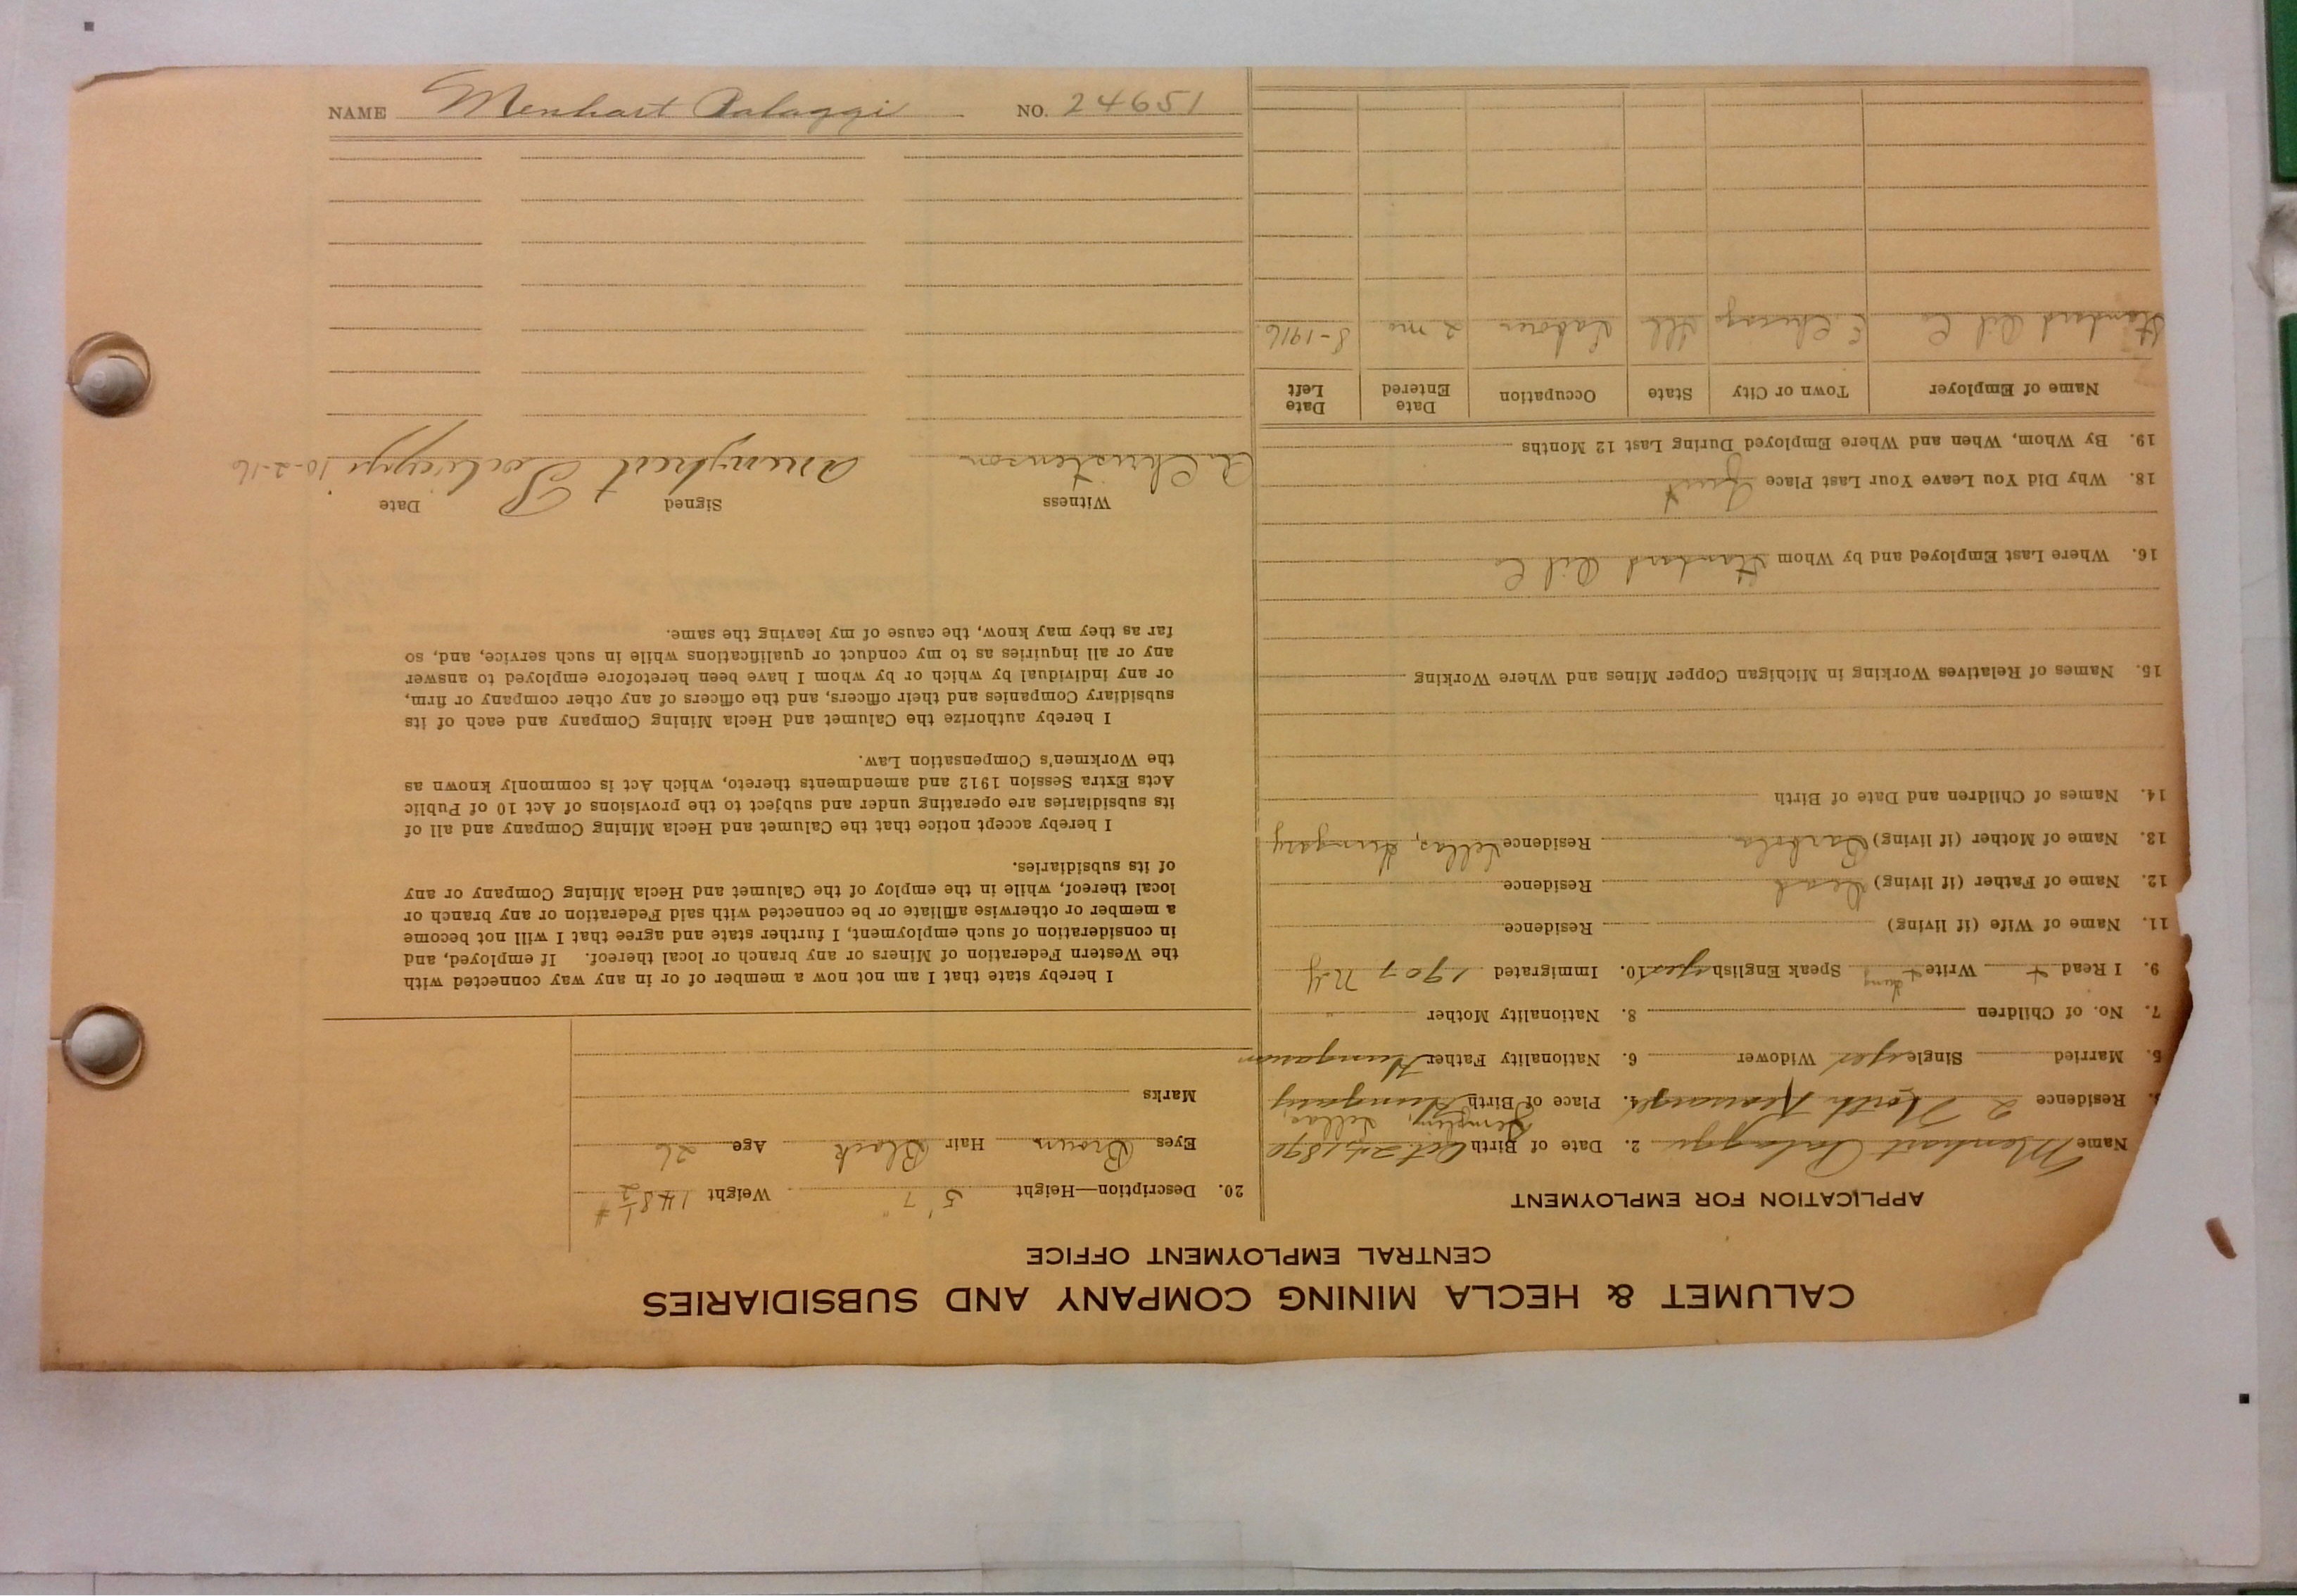 NAME Menhart Palaggi NO. 24651
CALUMET & HECLA MINING COMPANY AND SUBSIDIARIES
CENTRAL EMPLOYMENT OFFICE
APPLICATION FOR EMPLOYMENT
Name Menhart Palaggi 2. Date of Birth Oct. 24, 1890
3. Residence 2 North Kearsarge 4. Place of Birth Hungary
5. Married Single yes Widower 6. Nationality Father Hungarian
7. No. of Children 8. Nationality Mother "
9. I Read + Write + Hung Speak English yes 10. Immigrated 1907 N.Y
11. Name of Wife (if living) Residence
12. Name of Father (if living) Dead Residence
13. Name of Mother (if living) Residence Hungary
14. Names of Children and Date of Birth
15. Names of Relatives Working in Michigan Copper Mines and Where Working
16. Where Last Employed and by Whom Standard Oil Co
18. Why Did You Leave Your Last Place Quit
19. By Whom, When and Where Employed During Last 12 Months
Name of Employer Town or City State Occupation Date Entered Date Left
Standard Oil Co E. Chicago Ill Laborer 2 mo 8-1916
20. Description—Height 5' 7" Weight 148½ #
Eyes Brown Hair Black Age 26
Marks
I hereby state that I am not now a member of or in any way connected with
the Western Federation of Miners or any branch or local thereof. If employed, and
in consideration of such employment, I further state and agree that I will not become
a member or otherwise affiliate or be connected with said Federation or any branch or
local thereof, while in the employ of the Calumet and Hecla Mining Company or any
of its subsidiaries.
I hereby accept notice that the Calumet and Hecla Mining Company and all of
its subsidiaries are operating under and subject to the provisions of Act 10 of Public
Acts Extra Session 1912 and amendments thereto, which Act is commonly known as
the Workmen's Compensation Law.
I hereby authorize the Calumet and Hecla Mining Company and each of its
subsidiary Companies and their officers, and the officers of any other company or firm,
or any individual by which or by whom I have been heretofore employed to answer
any or all inquiries as to my conduct or qualifications while in such service, and, so
far as they may know, the cause of my leaving the same.
Witness Signed Date
A. Christenson 10-2-16